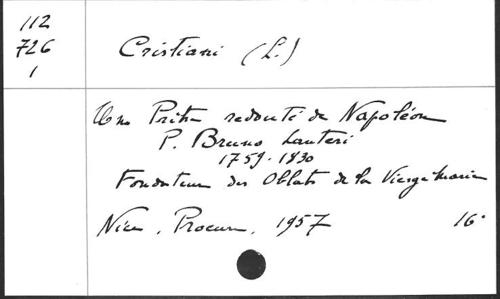 112
726
1
Cristiani (L.)
Un Prêtre redouté de Napoléon
P. Bruno Lanteri
1759-1830
Fondateur des Oblats de la Vierge Marie
Nice, Procure, 1957 16°